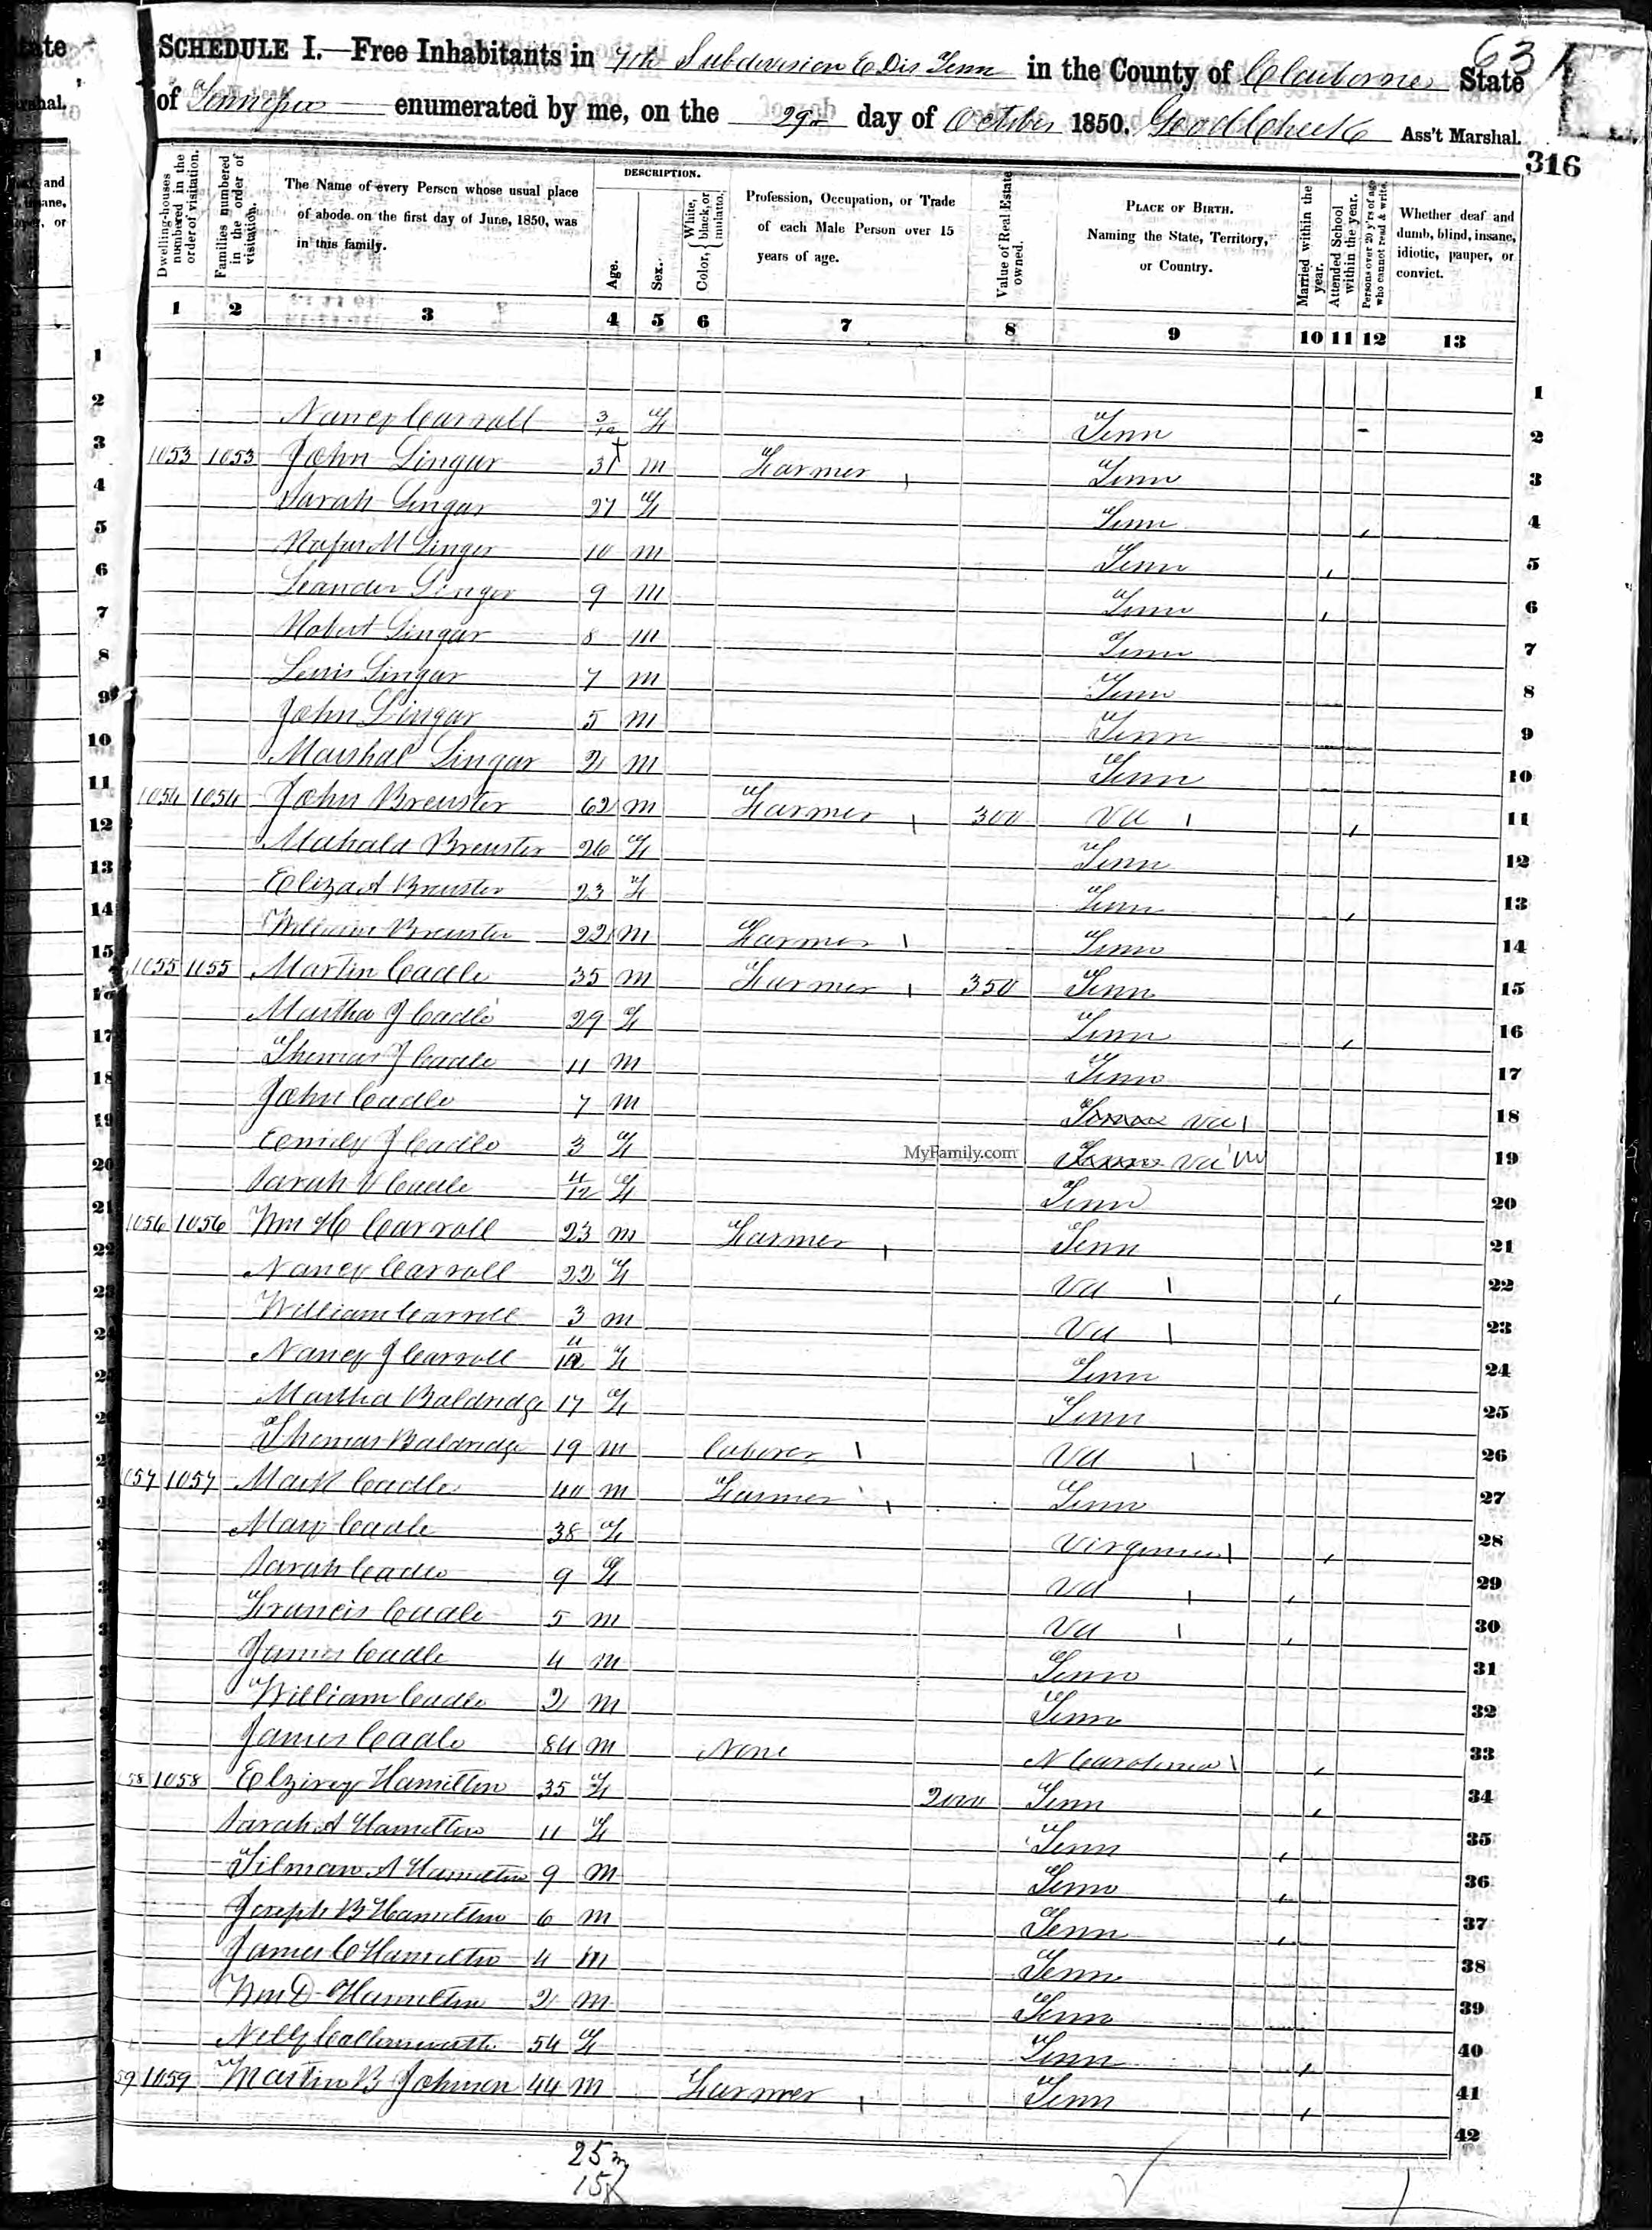 63
SCHEDULE I.—Free Inhabitants in 7th Subdivision E Dis Tenn in the County of Claiborne State
of Tennessee enumerated by me, on the 29 day of October 1850. Ass't Marshal.
316
Dwelling-houses numbered in the order of visitation.
Families numbered in the order of visitation.
The Name of every Person whose usual place of abode on the first day of June, 1850, was in this family.
DESCRIPTION.
Age.
Sex.
Color, { White, black, or mulatto.
Profession, Occupation, or Trade of each Male Person over 15 years of age.
Value of Real Estate owned.
PLACE OF BIRTH. Naming the State, Territory, or Country.
Married within the year.
Attended School within the year.
Persons over 20 y'rs of age who cannot read & write.
Whether deaf and dumb, blind, insane, idiotic, pauper, or convict.
1 2 3 4 5 6 7 8 9 10 11 12 13
1 1
2 Nancy Carroll 3/12 F Tenn 2
3 1053 1053 John Lingar 31 m Farmer Tenn 3
4 Sarah Lingar 27 F Tenn 4
5 Rufus M Linger 10 m Tenn 5
6 Leander Linger 9 m Tenn 6
7 Robert Lingar 8 m Tenn 7
8 Lewis Lingar 7 m Tenn 8
9 John Lingar 5 m Tenn 9
10 Marshal Lingar 2 m Tenn 10
11 1054 1054 John Breuster 62 m Farmer 300 Va 11
12 Mahala Breuster 26 F Tenn 12
13 Eliza A Breuster 23 F Tenn 13
14 William Breuster 22 m Farmer Tenn 14
15 1055 1055 Martin Cadle 35 m Farmer 350 Tenn 15
16 Martha J Cadle 29 F Tenn 16
17 Thomas J Cadle 11 m Tenn 17
18 John Cadle 7 m Tenn Va 18
19 Emily J Cadle 3 F Tenn Va 19
MyFamily.com
20 Sarah Cadle 4/12 F Tenn 20
21 1056 1056 Wm H Carroll 23 m Farmer Tenn 21
22 Nancy Carroll 22 F Va 22
23 William Carroll 3 m Va 23
24 Nancy J Carroll F Tenn 24
Martha Baldridge 17 F Tenn 25
Thomas Baldridge 19 m laborer Va 26
1057 1057 Mark Cadle 40 m Farmer Tenn 27
Mary Cadle 38 F Virginia 28
Sarah Cadle 9 F Va 29
Francis Cadle 5 m Va 30
James Cadle 4 m Tenn 31
William Cadle 2 m Tenn 32
James Cadle 84 m None N Carolina 33
58 1058 Elzirey Hamilton 35 F 2000 Tenn 34
Sarah A Hamilton 11 F Tenn 35
Tilman A Hamilton 9 m Tenn 36
Joseph B Hamilton 6 m Tenn 37
James C Hamilton 4 m Tenn 38
Wm D Hamilton 2 m Tenn 39
Nelly 54 F Tenn 40
59 1059 Martin B Johnson 44 m Farmer Tenn 41
42
25 m
15 F